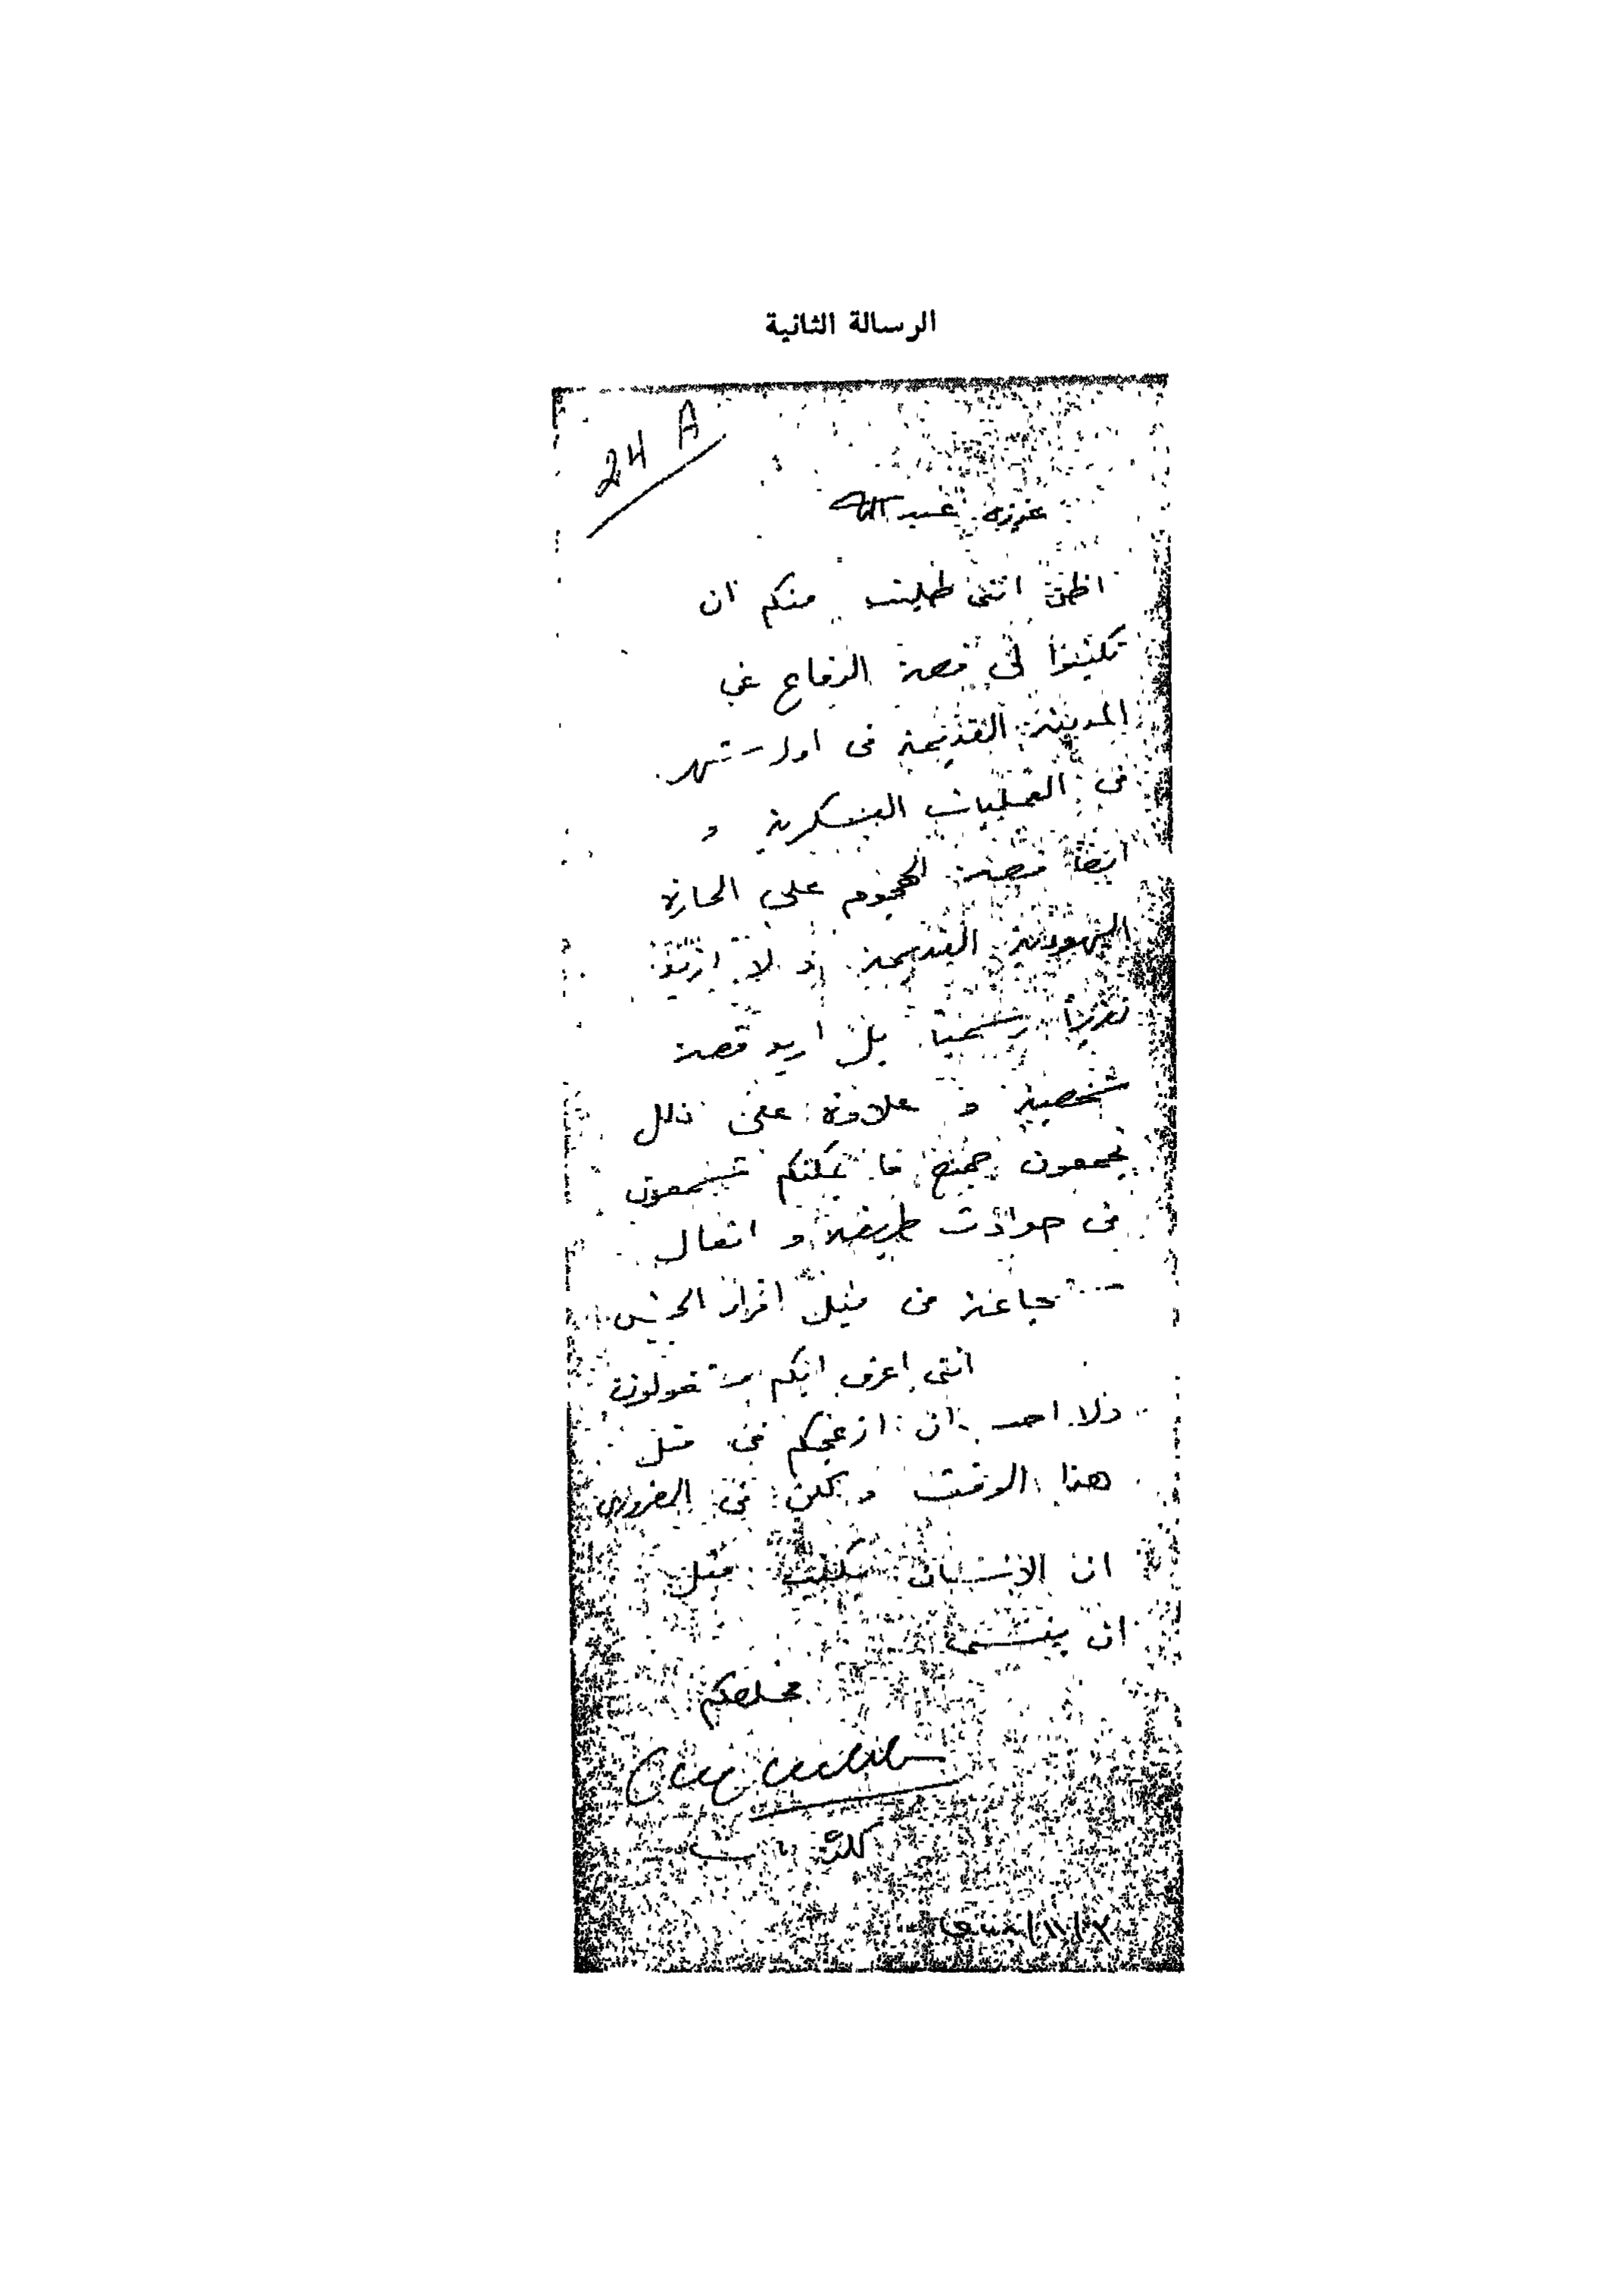 الرسالة الثانية
24 A
عزيزى عبدالله
اظن اننى طلبت منكم ان
تكتبوا لى قصة الدفاع عن
المدينة القديمة فى اول شهر
من العمليات العسكرية و
ايضا قصة الهجوم على الحارة
اليهودية القديمة و لا اريد
تقريرا رسميا بل اريد قصة
شخصية و علاوة على ذلك
تجمعون جميع ما يمكنكم تجمعون
من حوادث طريفة و افعال
شجاعة من قبل افراد الجيش
اننى اعرف انكم مشغولون
ولا احب ان ازعجكم فى مثل
هذا الوقت ولكن من الضرورى
ان الانسان يكتب قبل
ان ينسى
مخلصكم
كلوب